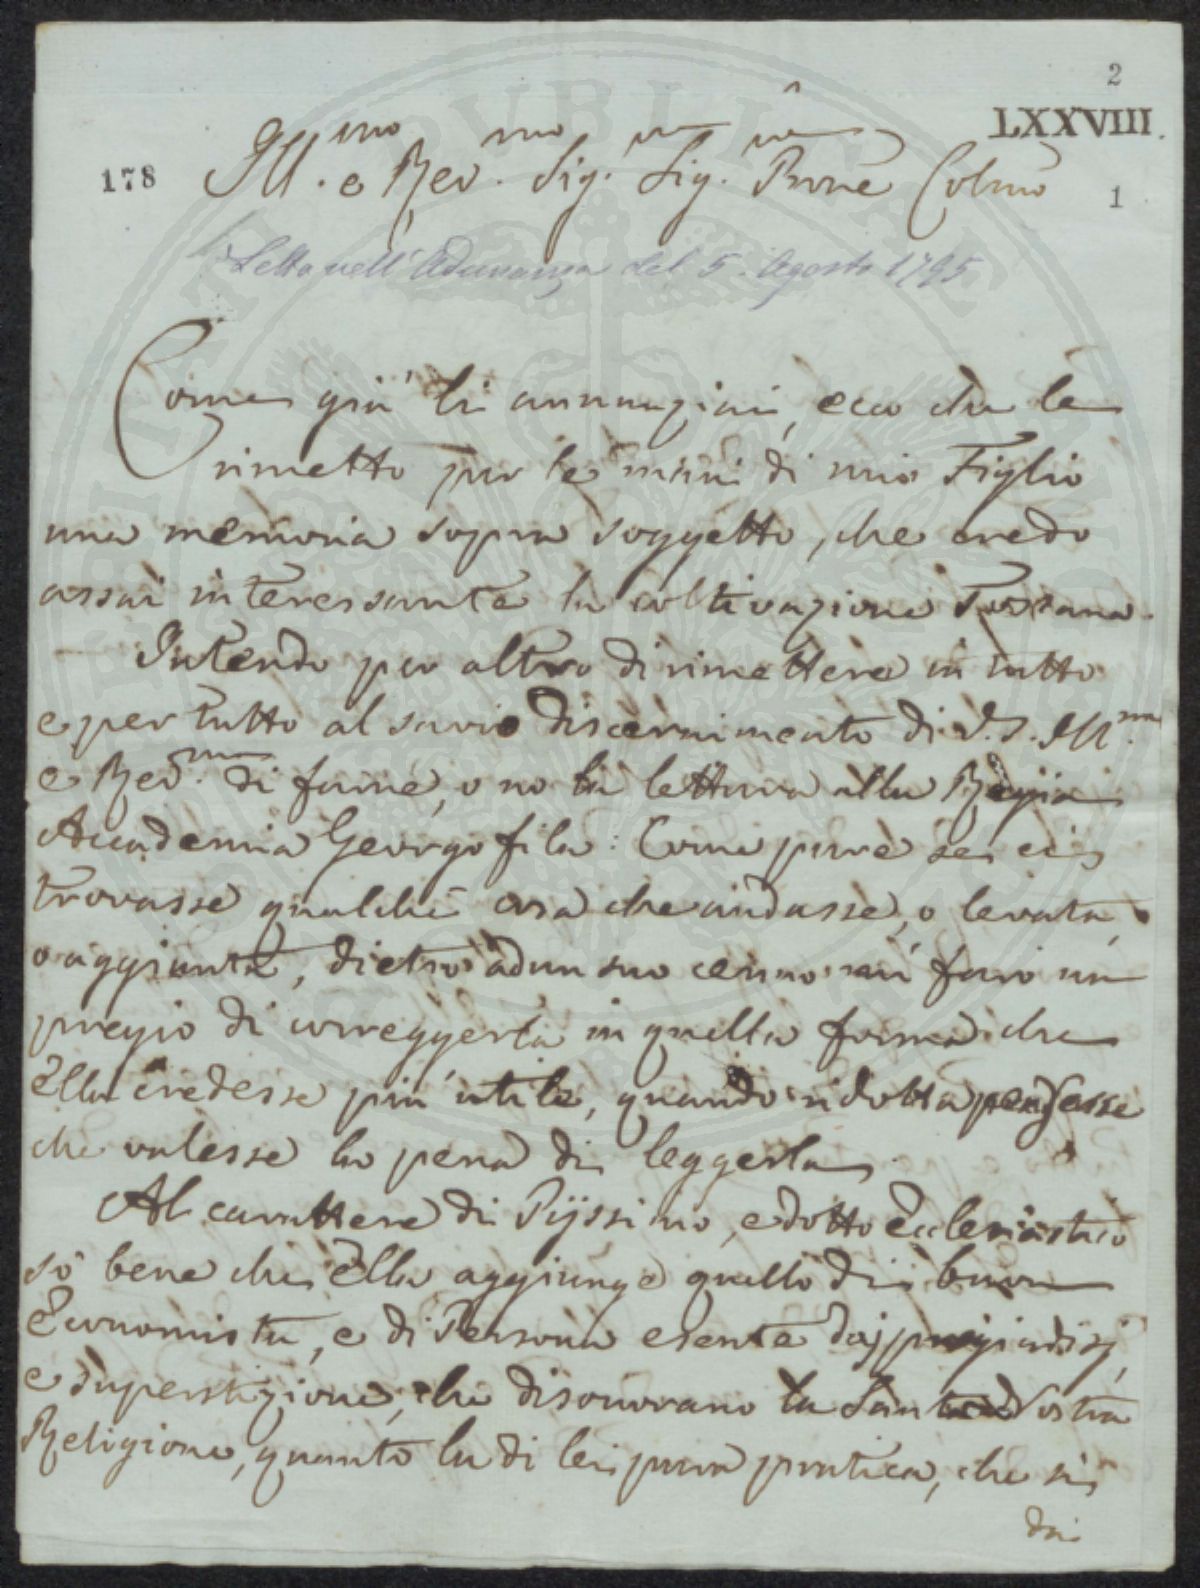 2
LXXVIII.
178
1
Ill.mo e Rev.mo Sig. Sig. Prone Colmo
Letta nell'Adunanza del 5. Agosto 1795
Come già li annunziai, ecco che le
rimetto per le mani di mio Figlio
una memoria sopra soggetto, che credo
assai interessante la coltivazione Toscana.
Intendo per altro di rimettere in tutto
e per tutto al savio discernimento di V.S. Ill.ma
e Rev.ma di farne, o no la lettura alla Regia
Accademia Georgofila: Come pure se ci
trovasse qualche cosa che andasse, o levata,
o aggiunta, dietro ad un suo cenno mi farò un
pregio di correggerla in quella forma che
Ella credesse più utile, quando ridotta pensasse
che valesse la pena di leggerla
Al carattere di Pijssimo, e dotto Ecclesiastico
so bene che Ella aggiunge quello di buon
Economista, e di Persona esente daj pregiudizj,
e superstizione, che disonorano la Santa Nostra
Religione, quanto la di lei pura pratica, che si
dai